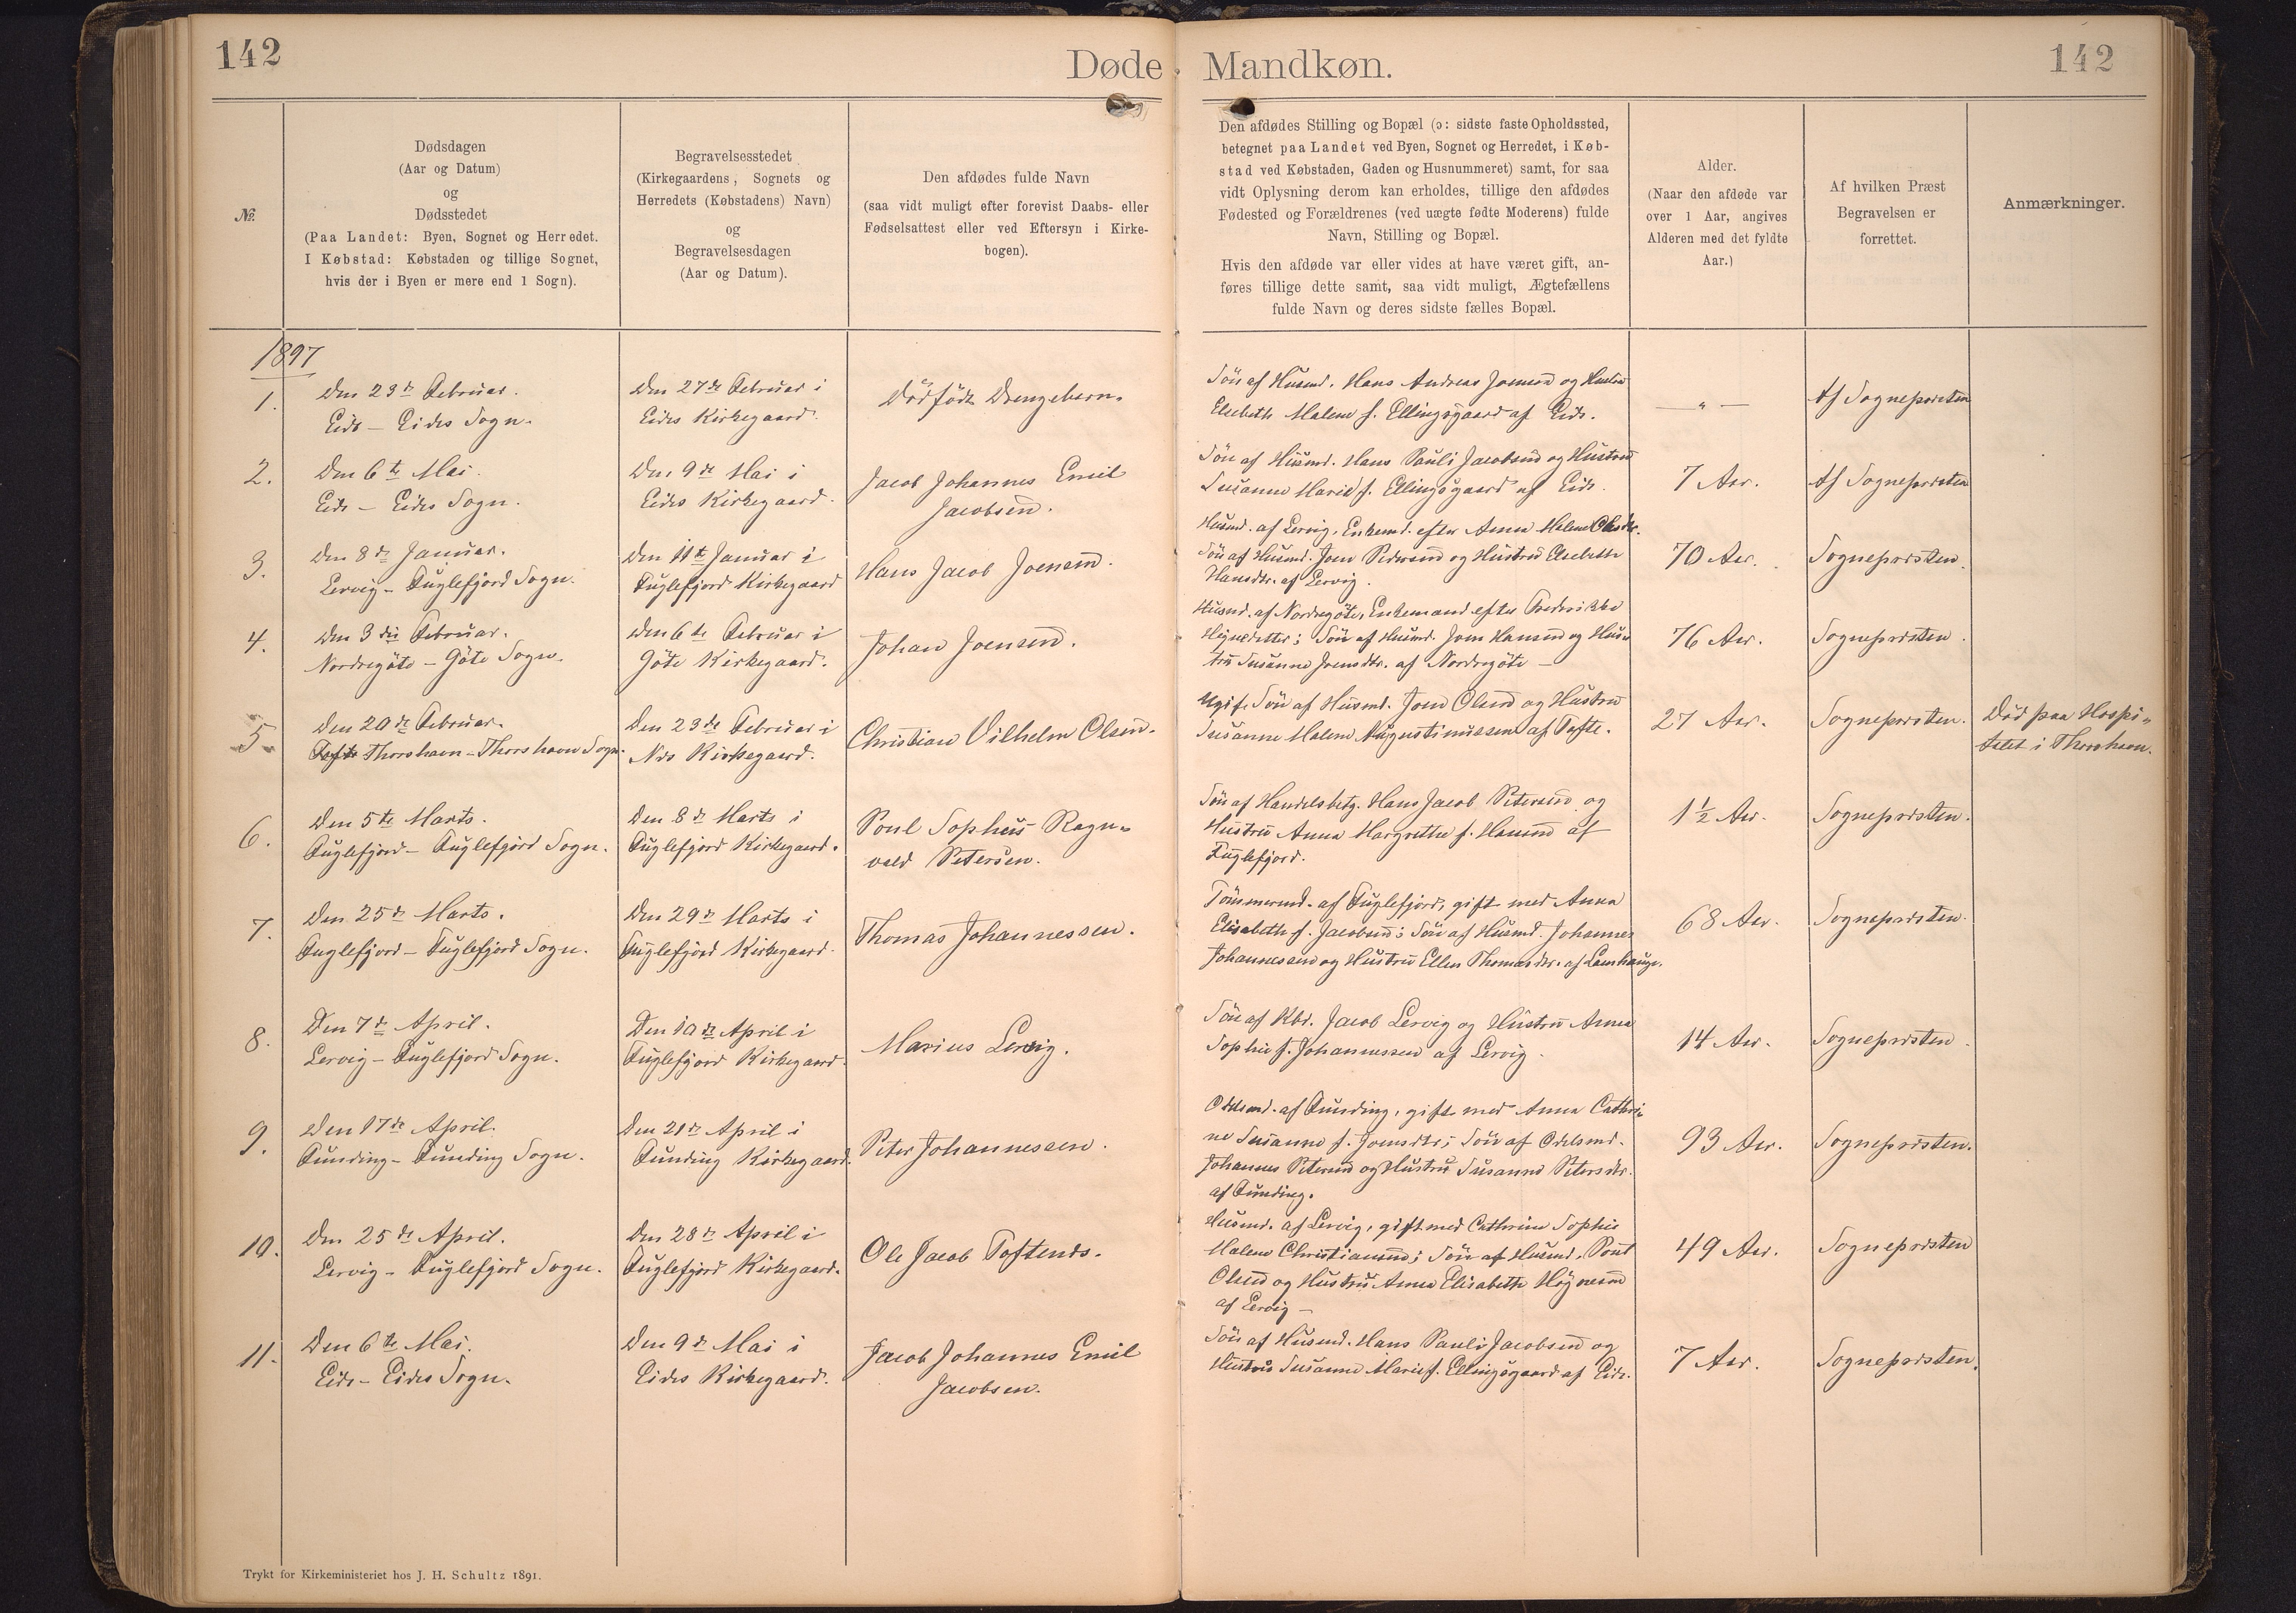 142
Døde
Mandkøn.
142
№.
Dødsdagen
(Aar og Datum)
og
Dødsstedet
(Paa Landet: Byen, Sognet og Herredet.
I Købstad: Købstaden og tillige Sognet,
hvis der i Byen er mere end 1 Sogn).
Begravelsesstedet
(Kirkegaardens, Sognets og
Herredets (Købstadens) Navn)
og
Begravelsesdagen
(Aar og Datum).
Den afdødes fulde Navn
(saa vidt muligt efter forevist Daabs- eller
Fødselsattest eller ved Eftersyn i Kirke-
bogen).
Den afdødes Stilling og Bopæl (ɔ: sidste faste Opholdssted,
betegnet paa Landet ved Byen, Sognet og Herredet, i Køb-
stad ved Købstaden, Gaden og Husnummeret) samt, for saa
vidt Oplysning derom kan erholdes, tillige den afdødes
Fødested og Forældrenes (ved uægte fødte Moderens) fulde
Navn, Stilling og Bopæl.
Hvis den afdøde var eller vides at have været gift, an-
føres tillige dette samt, saa vidt muligt, Ægtefællens
fulde Navn og deres sidste fælles Bopæl.
Alder.
(Naar den afdøde var
over 1 Aar, angives
Alderen med det fyldte
Aar.)
Af hvilken Præst
Begravelsen er
forrettet.
Anmærkninger.
1897
1.
Den 23de Februar.
Eide – Eides Sogn.
Den 27de Februar i
Eides Kirkegaard.
Dödfödt Drengebarn.
Sön af Husmd. Hans Andreas Joensen og Hustru
Elsebeth Malene f. Ellingsgaard af Eide.
— " —
Af Sognepræsten
2.
Den 6te Mai.
Eide – Eides Sogn.
Den 9de Mai i
Eides Kirkegaard.
Jacob Johannes Emil
Jacobsen.
Sön af Husmd. Hans Pauli Jacobsen og Hustru
Susanne Marie f. Ellingsgaard af Eide.
7 Aar.
Af Sognepræsten
3.
Den 8de Januar.
Lervig – Fuglefjord Sogn.
Den 11te Januar i
Fuglefjord Kirkegaard
Hans Jacob Joensen.
Husmd. af Lervig, Enkemd. efter Anna Malene Olesdtr.
Sön af Husmd. Joen Pedersen og Hustru Elsebeth
Hansdtr. af Lervig.
70 Aar.
Sognepræsten.
4.
Den 3die Februar.
Nordregöte – Göte Sogn.
Den 6te Februar i
Göte Kirkegaard.
Johan Joensen.
Husmd. af Nordregöte, Enkemand efter Frederikke
Højnedatter; Sön af Husmd. Joen Hansen og Hus-
tru Susanne Joensdtr. af Nordregöte –
76 Aar.
Sognepræsten.
5.
Den 20de Februar.
Thorshavn – Thorshavn Sogn.
Den 23de Februar i
Næs Kirkegaard.
Christian Vilhelm Olsen.
Ugift Sön af Husmd. Joen Olsen og Hustru
Susanne Malene Augustinussen af Tofte.
27 Aar.
Sognepræsten.
Död paa Hospi-
talet i Thorshavn.
6.
Den 5te Marts.
Fuglefjord – Fuglefjord Sogn.
Den 8de Marts i
Fuglefjord Kirkegaard.
Poul Sophus Ragn-
vald Petersen.
Sön af Handelsbetj. Hans Jacob Petersen og
Hustru Anna Margrethe f. Hansen af
Fuglefjord.
1½ Aar.
Sognepræsten.
7.
Den 25de Marts.
Fuglefjord – Fuglefjord Sogn.
Den 29de Marts i
Fuglefjord Kirkegaard.
Thomas Johannessen.
Tömmermd. af Fuglefjord, gift med Anna
Elisabeth f. Jacobsen; Sön af Husmd. Johannes
Johannessen og Hustru Ellen Thomasdtr. af Lamhauge.
68 Aar.
Sognepræsten.
8.
Den 7de April.
Lervig – Fuglefjord Sogn.
Den 10de April i
Fuglefjord Kirkegaard.
Marius Lervig.
Sön af Kbr. Jacob Lervig og Hustru Anna
Sophie f. Johannessen af Lervig.
14 Aar.
Sognepræsten.
9.
Den 17de April.
Funding – Funding Sogn.
Den 21de April i
Funding Kirkegaard.
Peter Johannessen.
Odelsmd. af Funding, gift med Anna Cathri-
ne Susanne f. Joensdtr; Sön af Odelsmd.
Johannes Petersen og Hustru Susanne Petersdtr.
af Funding.
93 Aar.
Sognepræsten.
10.
Den 25de April.
Lervig – Fuglefjord Sogn.
Den 28de April i
Fuglefjord Kirkegaard.
Ole Jacob Toftenes.
Husmd. af Lervig, gift med Cathrine Sophie
Malene Christiansen; Sön af Husmd. Poul
Olsen og Hustru Anna Elisabeth Højnesen
af Lervig –
49 Aar.
Sognepræsten
11.
Den 6te Mai.
Eide – Eides Sogn.
Den 9de Mai i
Eides Kirkegaard.
Jacob Johannes Emil
Jacobsen.
Sön af Husmd. Hans Pauli Jacobsen og
Hustru Susanne Marie f. Ellingsgaard af Eide.
7 Aar.
Sognepræsten.
Trykt for Kirkeministeriet hos J. H. Schultz 1891.